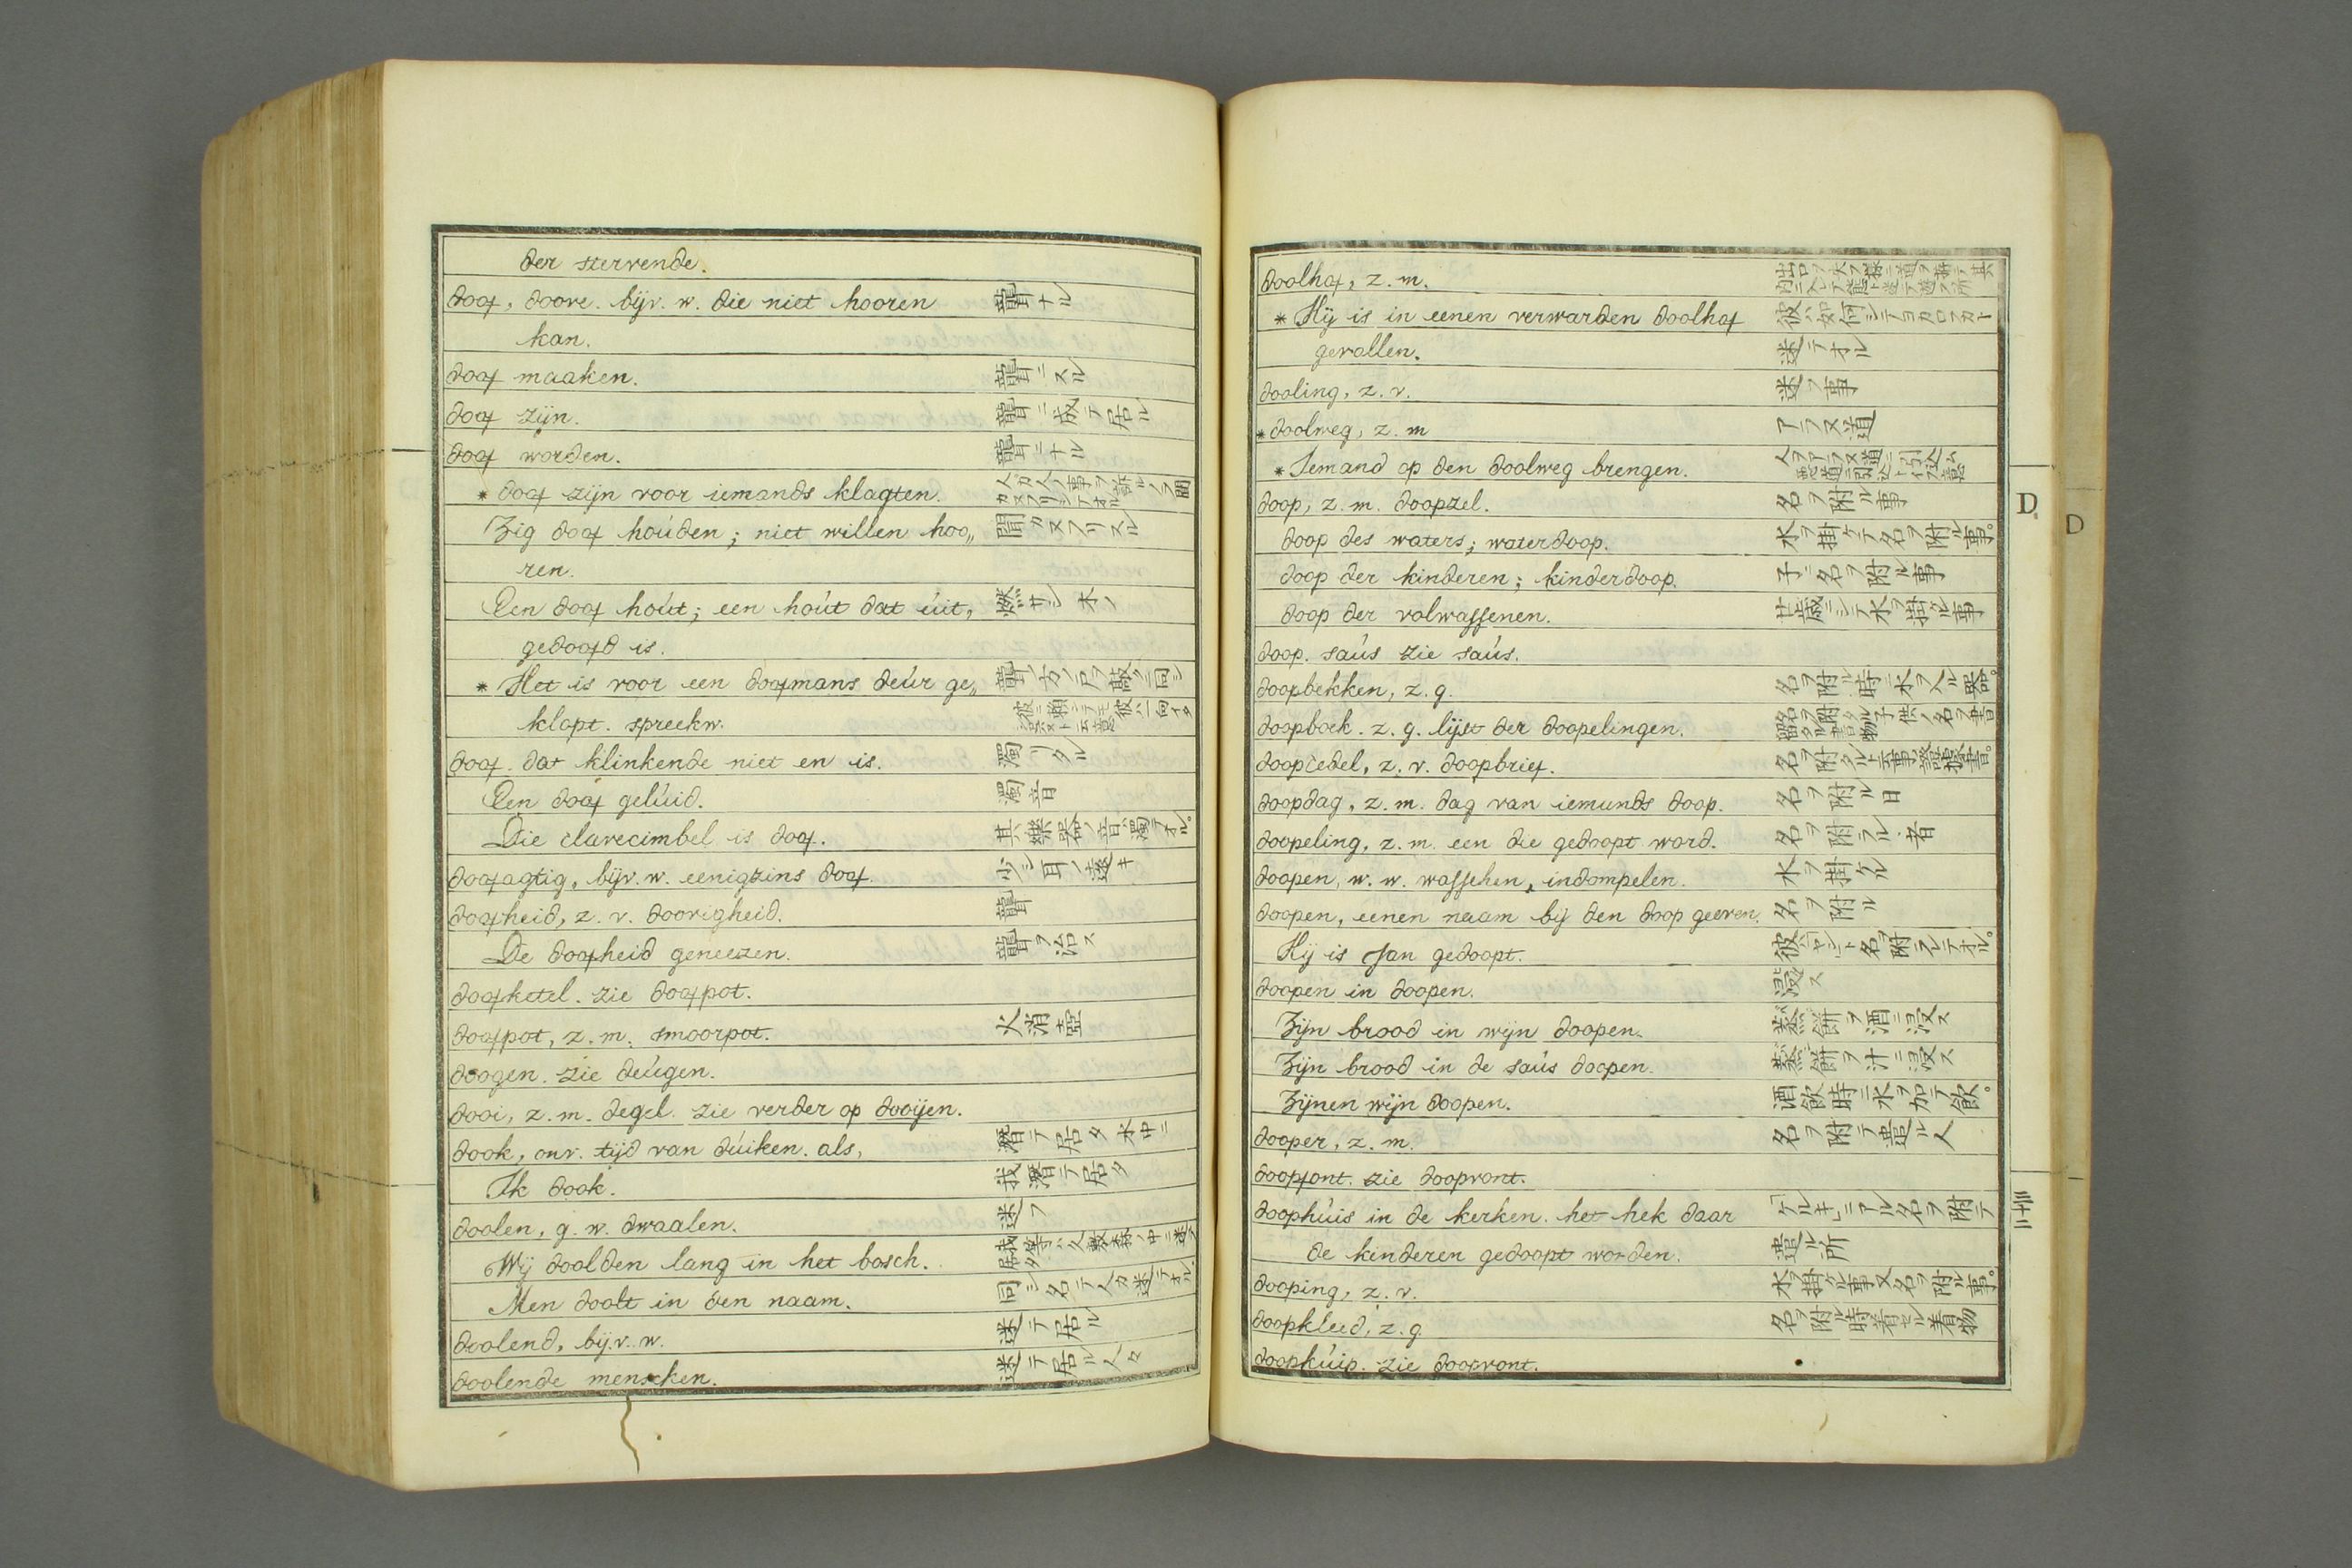 der stervende.
doof, doove. bijv. w. die niet hooren 聾ナル
kan.
doof maaken. 聾ニスル
doof zijn. 聾ニ成テ居ル
doof worden. 聾ニナル
* doof zijn voor iemands klagten. 人カ人ノ事ヲ訴ルノヲ聞カヌフリシテオル
Zig doof houden; niet willen hoo„ 聞カヌフリスル
ren.
Een doof hout; een hout dat uit, 燃サシ木ノ
gedoofd is.
* Het is voor een doofmans deur ge„ 聾ノ方ノ戸ヲ敲クニ同シ
klopt. spreekw.
doof. dat klinkende niet en is. 濁リタル
Een doof geluid. 濁音
Die clavecimbel is doof. 其樂器ノ音ハ濁テオル。
doofagtig, bijv. w. eenigzins doof. 少シ耳ノ遠キ
doofheid, z. v. doovigheid. 聾
De doofheid geneezen. 聾ヲ治ス
doofketel. zie doofpot.
doofpot, z. m. smoorpot. 火消壺
doogen. zie deugen.
dooi, z. m. degel. zie verder op dooijen.
dook, onv. tijd van duiken. als, 潛テ居タ水中ニ
Ik dook. 我潛テ居タ
doolen, g. w. dwaalen. 迷フ
Wij doolden lang in het bosch. 我等ハ久敷森ノ中ニ迷フ居タ
Men doolt in den naam. 同シ名テ人カ迷テオル
doolend, bij. v. w. 迷テ居ル
doolende menschen. 迷テ居ル人々
doolhof, z. m.
* Hij is in eenen verwarden doolhof 彼ハ如何シテヨカロフカト
gevallen. 迷テオル
dooling, z. v. 迷フ事
* doolweg, z. m アラヌ道
* Iemand op den doolweg brengen. 人ヲアラヌ道ニ引込ム
doop, z. m. doopzel. 名ヲ附ル事
doop des waters; waterdoop. 水ヲ掛ケテ名ヲ附ル事。
doop der kinderen; kinderdoop. 子ニ名ヲ附ル事
doop der volwassenen. 廿歳ニシテ水ヲ掛ル事
doop. saus zie saus.
doopbekken, z. g. 名ヲ附ル時ニ水ヲ入ル器。
doopboek. z. g. lijst der doopelingen. 名ヲ附タル子供ノ名ヲ書留タル書物
doopcedel, z. v. doopbrief. 名ヲ附タルト云事ノ證據書。
doopdag, z. m. dag van iemunds doop. 名ヲ附ル日
doopeling, z. m. een die gedoopt word. 名ヲ附ラル者
doopen, w. w. wasschen, indompelen. 水ヲ掛ケル
doopen, eenen naam bij den doop geeven. 名ヲ附ル
Hij is Jan gedoopt. 彼ハヤント名ヲ附ラレテオル。
doopen in doopen. 浸ス
Zijn brood in wijn doopen. 蒸餅ヲ酒ニ浸ス
Zijn brood in de saus doopen. 蒸餅ヲ汁ニ浸ス
Zijnen wijn doopen. 酒飲時ニ水ヲ加テ飲。
dooper, z. m. 名ヲ附テ遣ル人
doopfont. zie doopvont.
doophuis in de kerken. het hek daar 「ケルキ」ニアル名ヲ附テ
de kinderen gedoopt worden. 遣ル所
dooping, z. v. 水ヲ掛ケル事又名ヲ附ル事。
doopkleed, z. g. 名ヲ附ル時ニ着セル着物
doopkuip. zie doopvont.
D
D